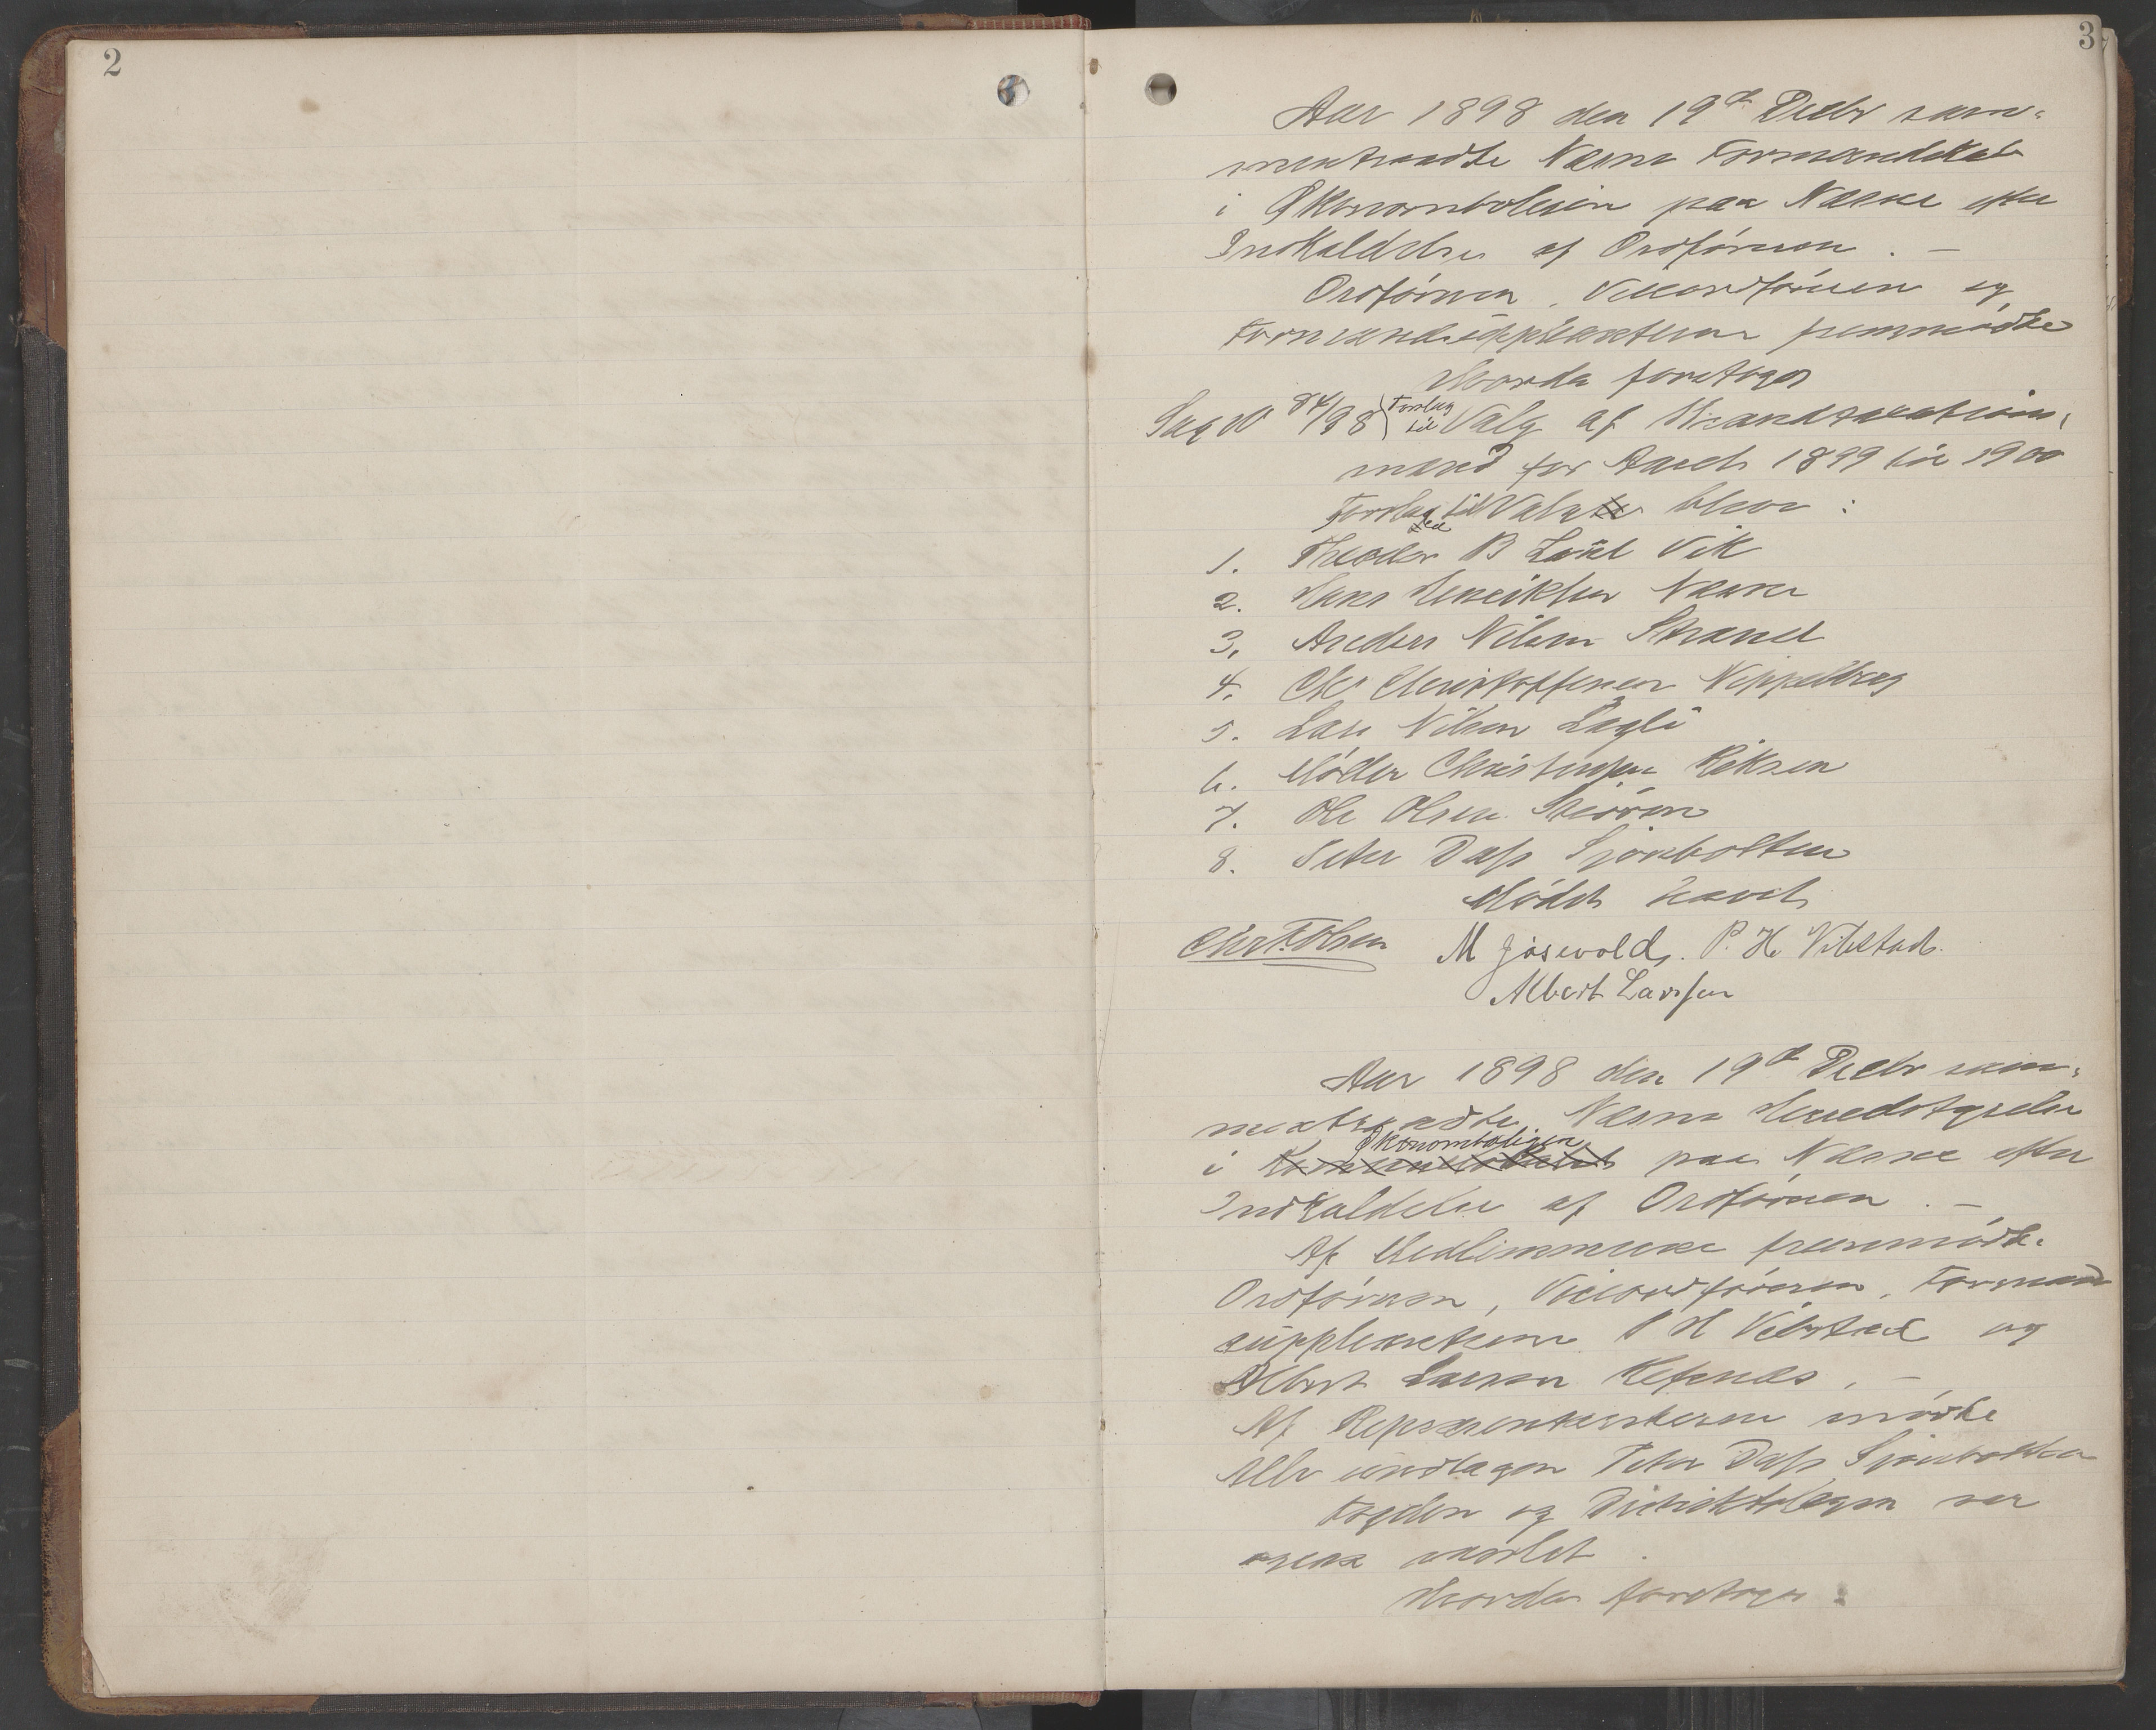 2
3
Aar 1898 den 19de Decbr sam-
mentraadte Næsna Formandskab
i Økonomboligen paa Næsna efter
Indkaldelse af Ordføreren. –
Ordføreren, Viceordføreren og
Formandssuppleanterne fremmødte
Hvorda foretoges
Sag No 84/98 Forslag til Valg af Mandtals
mænd for Aaret 1899 til 1900
Forslag til Valgte bleve :
1. Theodor B Lund Vik
2. Hans Henriksen Næsna
3. Anders Nilsen Strand
4. Ole Christoffersen Neppelberg
5. Lars Nilsen Lagli
6. Møller Christensen
7. Ole Olsen
8. Peter Dass Sjonbotten
Mødet hævet
Chr. F. Olsen M Jøsevold. P. H. Vibstad.
Albert Larssen
Aar 1898 den 19de Decbr sam-
mentraadte Næsna Herredstyrelse
i Økonomboligen paa Næsna efter
Indkaldelse af Ordføreren. –
Af Medlemmerne fremmødte
Ordføreren, Viceordføreren, Formands
suppleanterne P H Vibstad og
Albert Larssen –
Af Repræsentanterne mødte
Alle undtagen Peter Dass Sjonbotten
Fogden og Distriktslægen var
ogsaa varslet.
Hvorda foretoges :